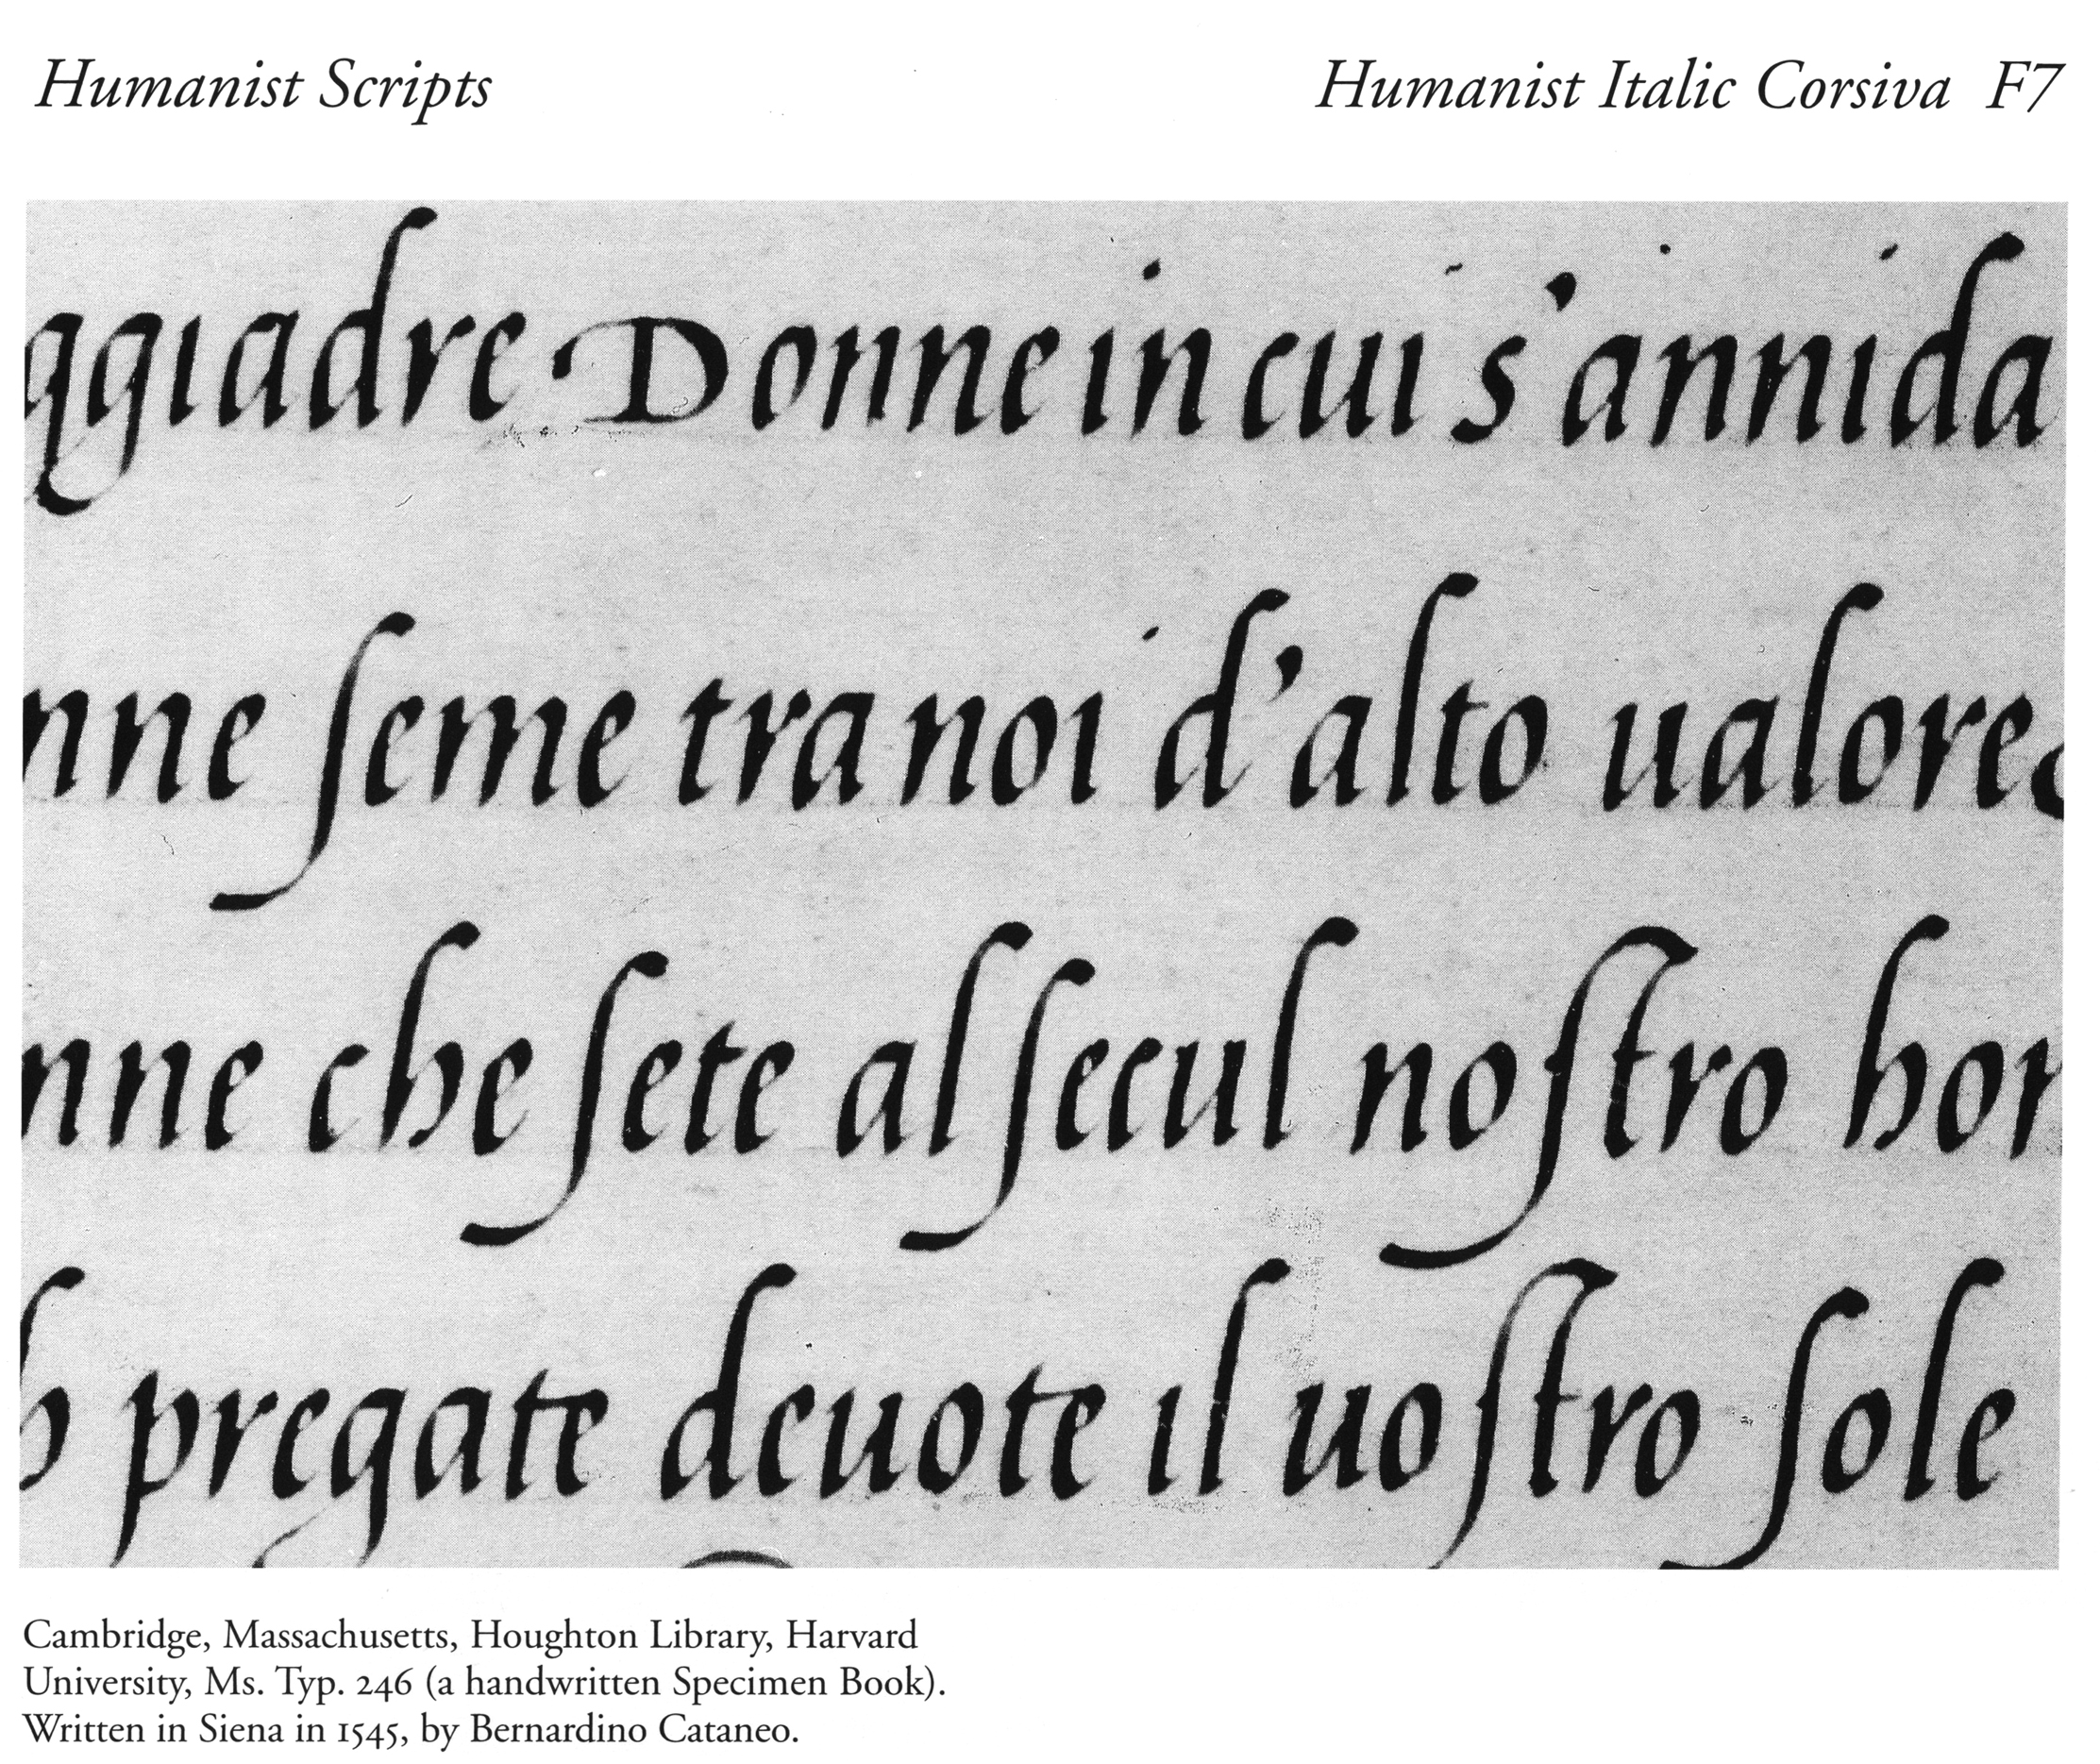 Humanist Scripts
Humanist Italic Corsiva F7
ggiadre Donne in cui s'annida
nne ſeme tra noi d'alto ualore
nne che ſete al ſecul noſtro hon
pregate deuote il uoſtro ſole
Cambridge, Massachusetts, Houghton Library, Harvard
University, Ms. Typ. 246 (a handwritten Specimen Book).
Written in Siena in 1545, by Bernardino Cataneo.